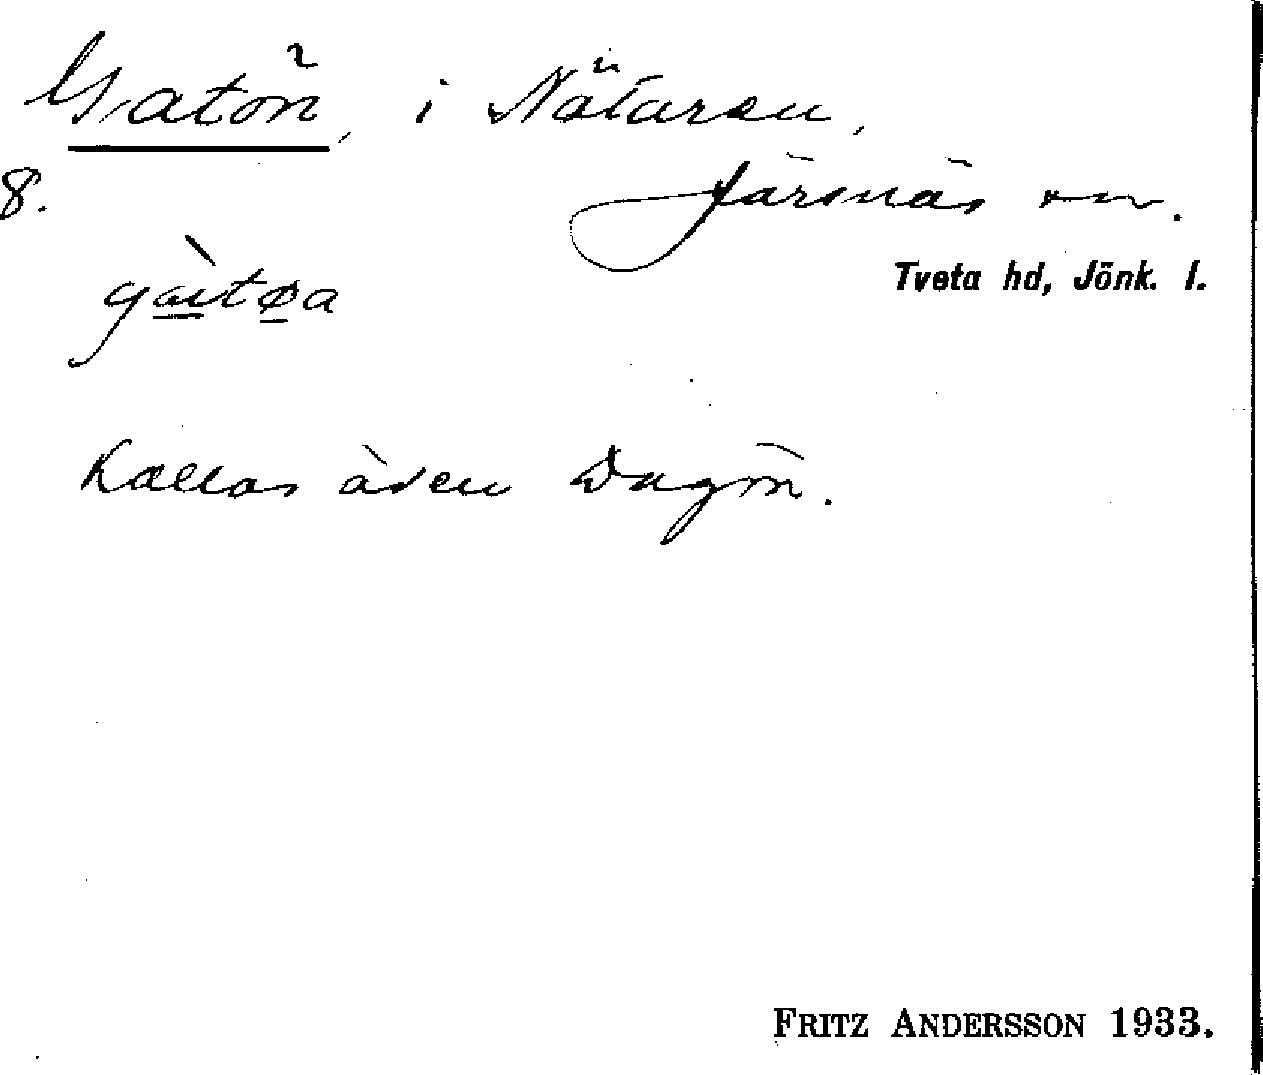 Gatön, i Nätaren,
8. Järsnäs sn.
Tveta hd, Jönk. l.
Kallas även Dagön.
FRITZ ANDERSSON 1933.